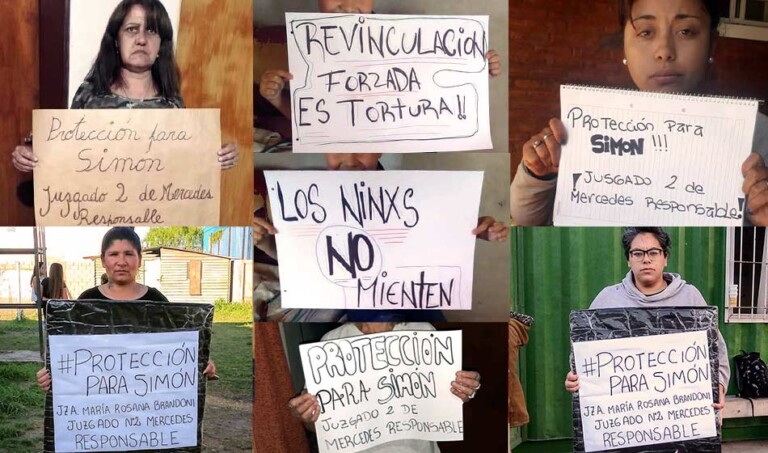 Protección para
Simon
Juzgado 2 de Mercedes
Responsable
REVINCULACION
FORZADA
ES TORTURA!!
PROTECCIÓN PARA
SIMON!!!
¡JUSGADO 2 de
Mercedes Responsable!
LOS NINXS
NO
MIENTEN
#PROTECCIÓN
PARA SIMÓN
JZA. MARÍA ROSANA BRANDONI
JUZGADO N2 MERCEDES
RESPONSABLE
PROTECCIÓN
PARA SIMÓN
JUZGADO 2 DE
MERCEDES RESPONSABLE
#PROTECCIÓN
PARA SIMÓN
JZA. MARÍA ROSANA BRANDONI
JUZGADO N2 MERCEDES
RESPONSABLE